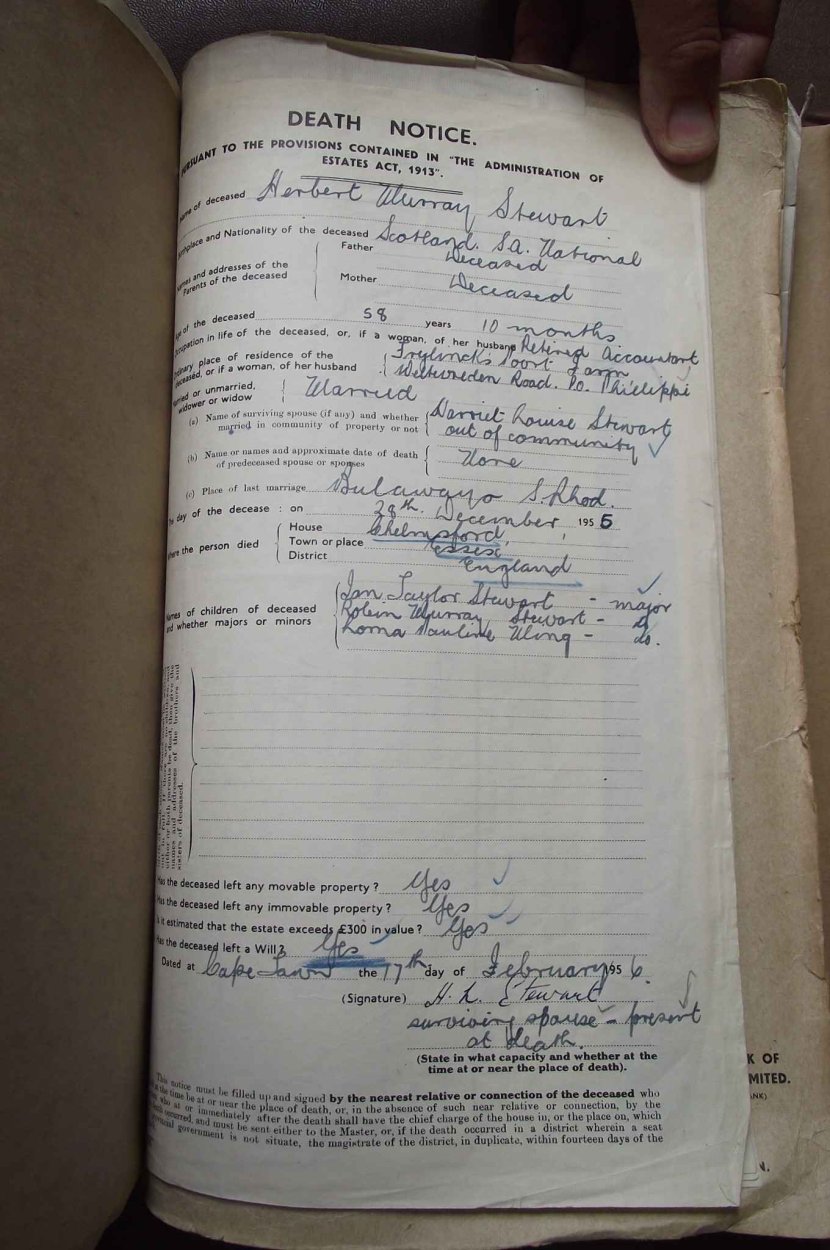 DEATH NOTICE.
PURSUANT TO THE PROVISIONS CONTAINED IN "THE ADMINISTRATION OF
ESTATES ACT, 1913".
Name of deceased Herbert Murray Stewart
Birthplace and Nationality of the deceased Scotland. S.A. National
Names and addresses of the Parents of the deceased
Father Deceased
Mother Deceased
Age of the deceased 58 years 10 months
Occupation in life of the deceased, or, if a woman, of her husband Retired Accountant
Ordinary place of residence of the Poort Farm
deceased, or if a woman, of her husband Weltevreden Road. P.O. Philippi
Married or unmarried, Married
widower or widow
(a) Name of surviving spouse (if any) and whether Harriet Louise Stewart
married in community of property or not out of community
(b) Name or names and approximate date of death None
of predeceased spouse or spouses
(c) Place of last marriage Bulawayo S. Rhod.
The day of the decease : on 28th. December, 1955
Where the person died
House Chelmsford,
Town or place Essex
District England
Names of children of deceased
and whether majors or minors
Ian Taylor Stewart - major
Robin Murray Stewart -
Lorna Pauline - do.
names and addresses of the brothers and
sisters of deceased.
Has the deceased left any movable property ? Yes
Has the deceased left any immovable property ? Yes
Is it estimated that the estate exceeds £300 in value ? Yes
Has the deceased left a Will ? Yes
Dated at Cape Town the 17th day of February 1956.
(Signature) H. L. Stewart
surviving spouse - present
at death.
(State in what capacity and whether at the
time at or near the place of death).
This notice must be filled up and signed by the nearest relative or connection of the deceased who
at the time be at or near the place of death, or, in the absence of such near relative or connection, by the
who at or immediately after the death shall have the chief charge of the house in, or the place on, which
occurred, and must be sent either to the Master, or, if the death occurred in a district wherein a seat
government is not situate, the magistrate of the district, in duplicate, within fourteen days of the
K OF
MITED.
ANK)
N.